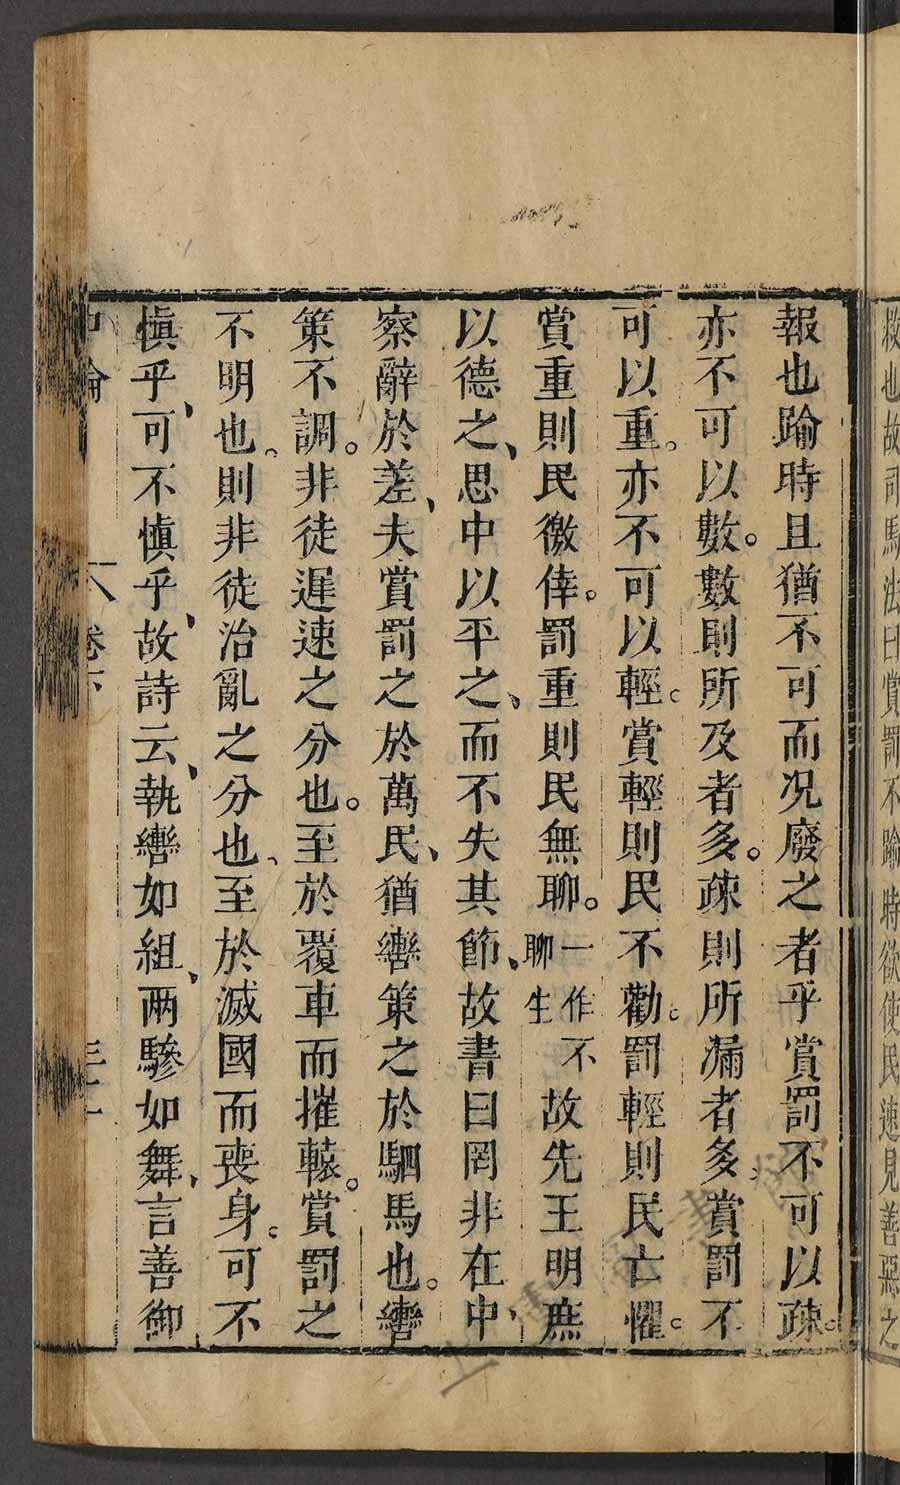 救也故司馬法曰賞罰不踰時欲使民速見善惡之
報也踰時且猶不可而况廢之者乎賞罰不可以疎。
亦不可以數。數則所及者多。疎則所漏者多、賞罰不
可以重。亦不可以輕。賞輕則民不勸、罰輕則民亡懼。
賞重則民徼倖。罰重則民無聊。一作不聊生故先王明庶
以德之、思中以平之、而不失其節、故書曰罔非在中、
察辭於差、夫賞罰之於萬民、猶轡策之於駟馬也。轡
策不調。非徒遲速之分也。至於覆車而摧轅。賞罰之
不明也、則非徒治亂之分也、至於滅國而喪身、可不
慎乎、可不慎乎、故詩云、執轡如組、兩驂如舞、言善御
中論 卷下